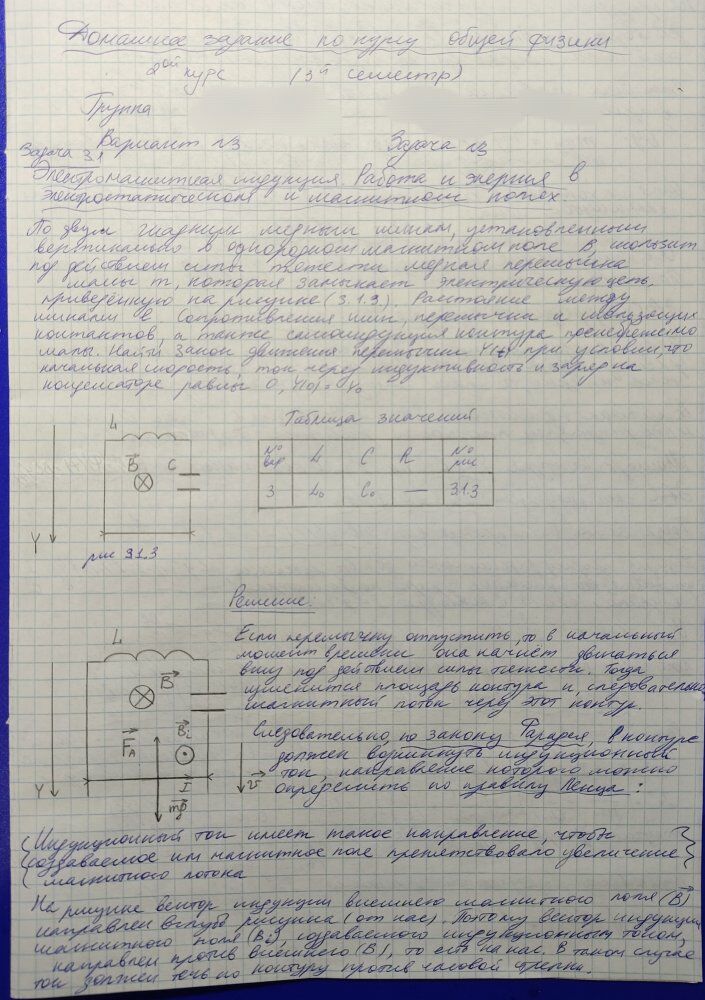 Домашнее задание по курсу общей физики
2ой курс (3й семестр)
Группа
Вариант №3 Задача №3
Задача 3.1
Электромагнитная индукция. Работа и энергия в
электростатическом и магнитном полях.
По двум гладким медным шинам, установленным
вертикально в однородном магнитном поле B скользит
под действием силы тяжести медная перемычка
массы m, которая замыкает электрическую цепь,
приведённую на рисунке (3.1.3). Расстояние между
шинами ℓ. Сопротивления шин, перемычки и скользящих
контактов, а также самоиндукция контура пренебрежимо
малы. Найти закон движения перемычки Y(t) при условии что
начальная скорость, ток через индуктивность и заряд на
конденсаторе равны 0, Y(0) = Y₀
Таблица значений
№ вар L C R № рис
3 L₀ C₀ — 3.1.3
L
B C
Y
рис 3.1.3
Решение:
Если перемычку отпустить, то в начальный
момент времени она начнёт двигаться
вниз под действием силы тяжести. Тогда
изменится площадь контура и, следовательно
магнитный поток через этот контур.
Следовательно, по закону Фарадея, в контуре
должен возникнуть индукционный
ток, направление которого можно
определить по правилу Ленца:
L
B
Bi
FA
I
Y mg v
Индукционный ток имеет такое направление, чтобы
создаваемое им магнитное поле препятствовало увеличению
магнитного потока
На рисунке вектор индукции внешнего магнитного поля (B)
направлен вглубь рисунка (от нас). Поэтому вектор индукции
магнитного поля (Bi), создаваемого индукционным током,
направлен против внешнего (B), то есть на нас. В таком случае
ток должен течь по контуру против часовой стрелки.